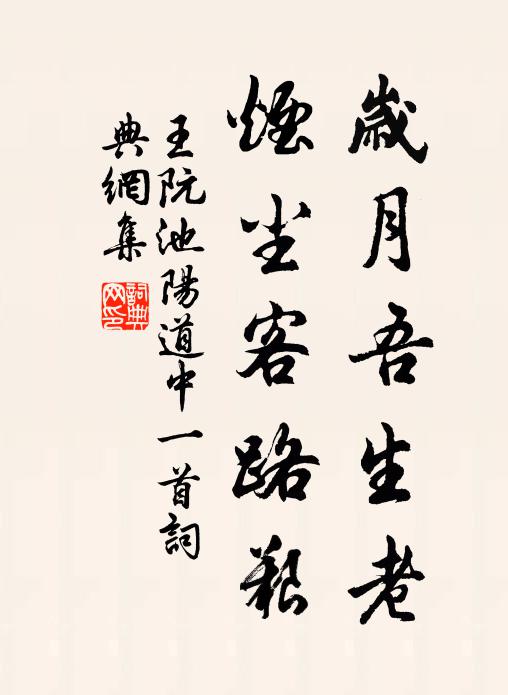 歲月吾生老
煙尘客路艱
王阮池陽道中一首詞
典網集
詞典
网印